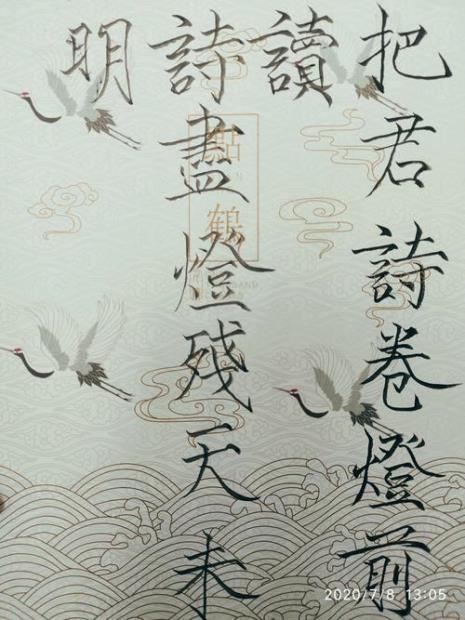 把君詩卷燈前
讀
詩盡燈殘天未
明
點鶴
2020/7/8 13:05